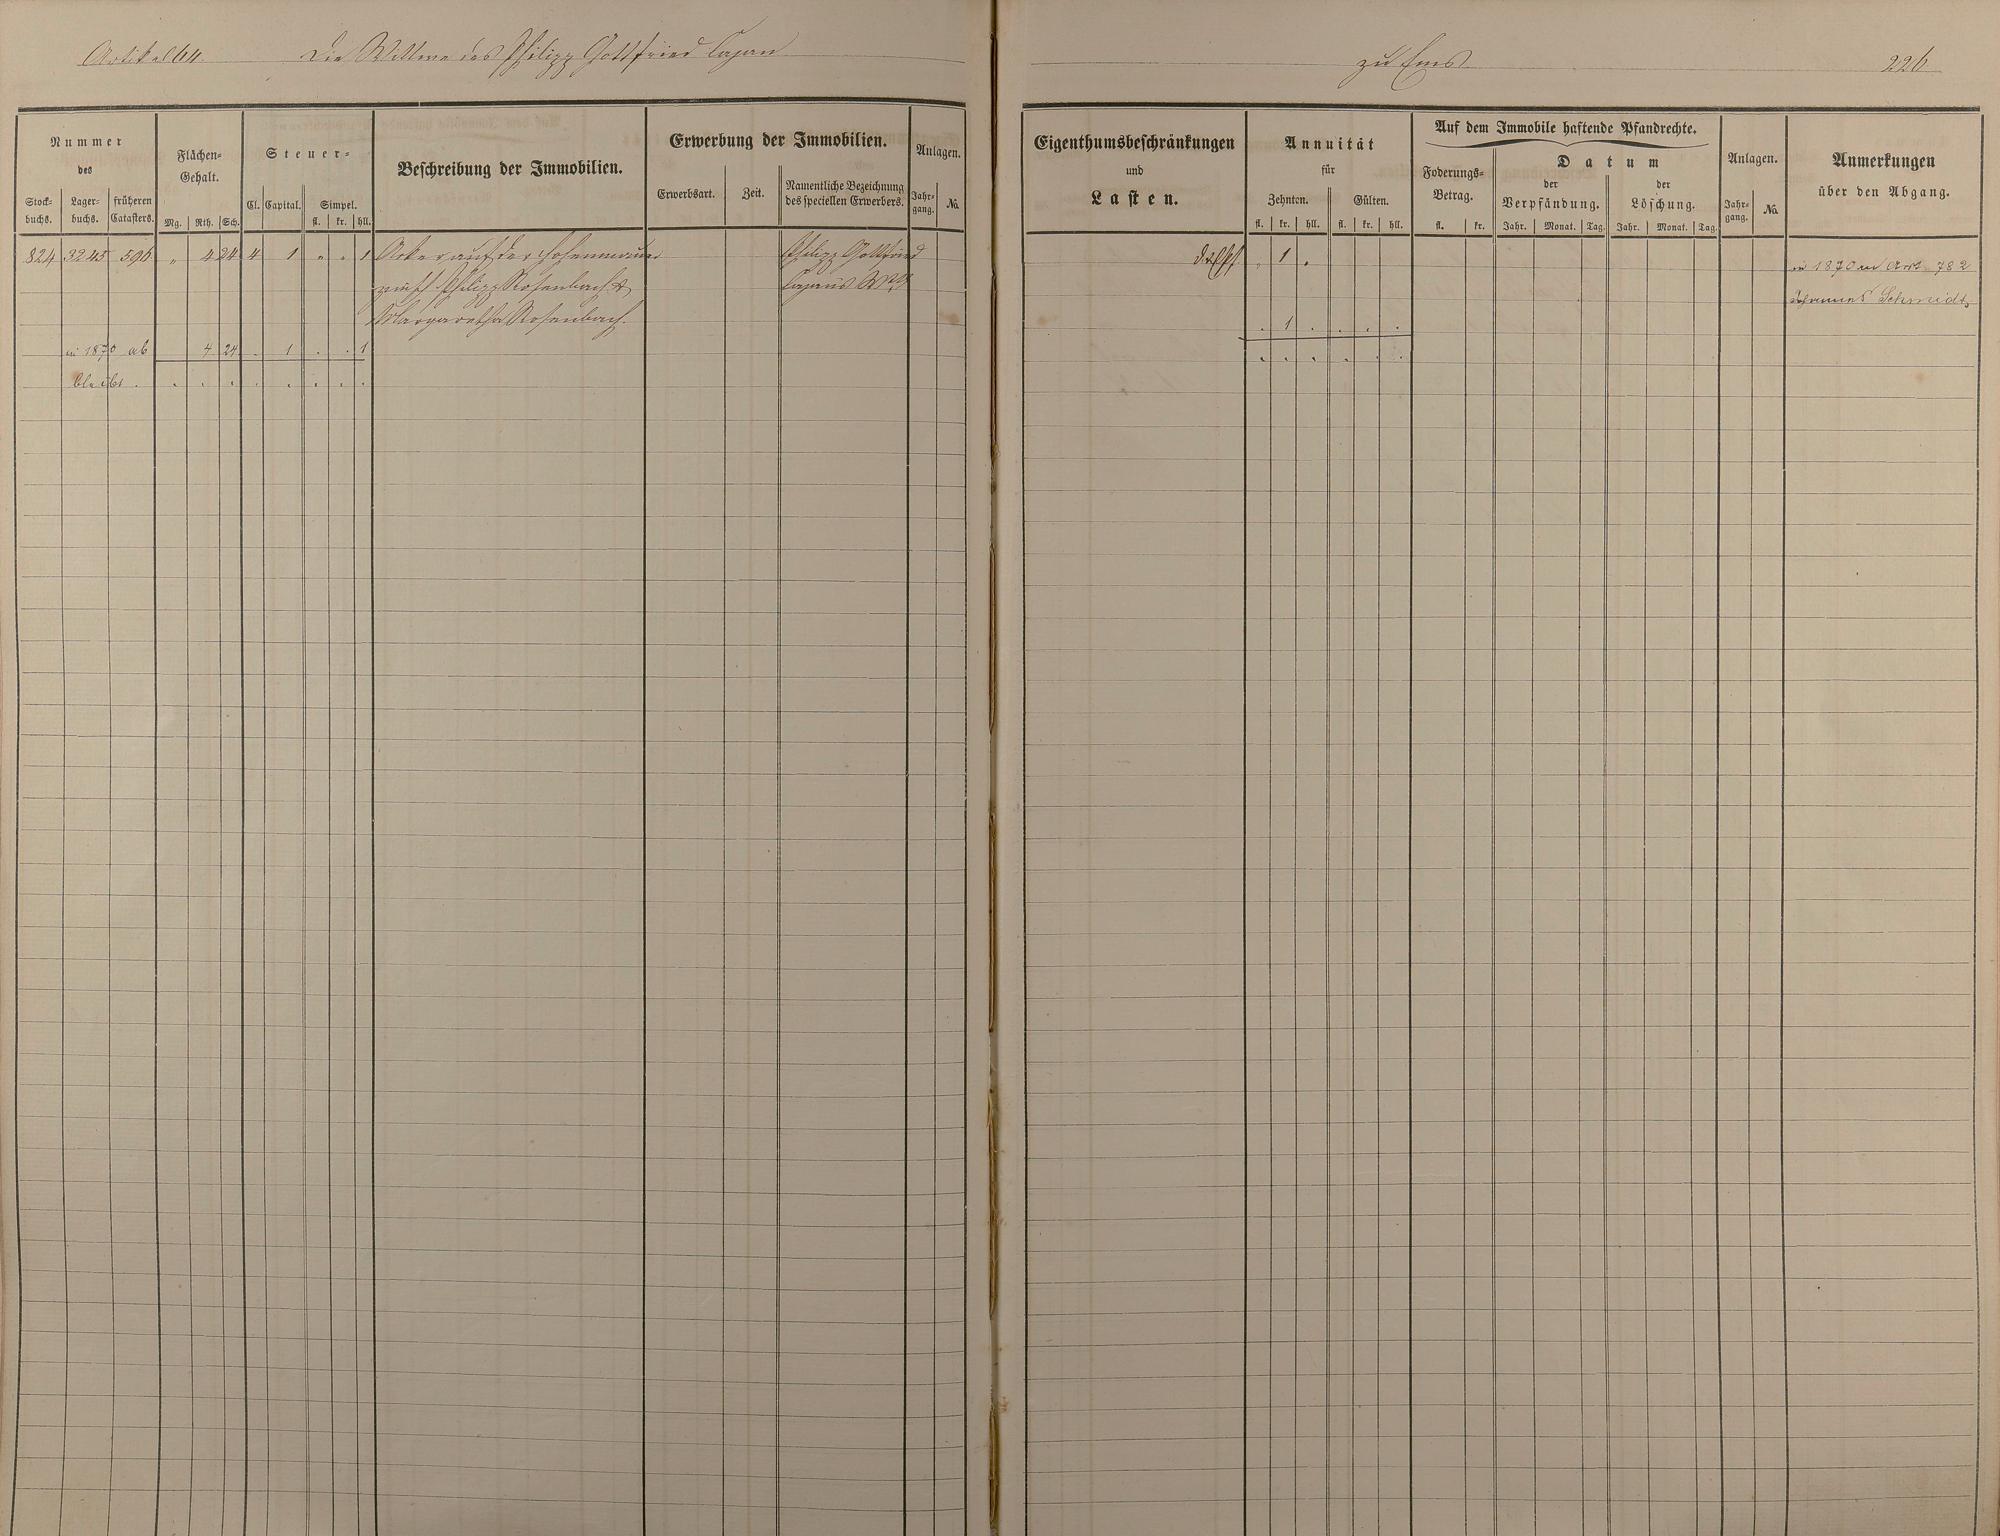 Artikel 64. Die Wittwe des Philipp Gottfried Cajan
zu Ems 226
Nummer
des
Stock-
buchs.
Lager-
buchs.
früheren
Catasters.
Flächen-
Gehalt.
Mg. Rth. Sch.
Steuer-
Cl. Capital.
Simpel.
fl. kr. hll.
Beschreibung der Immobilien.
Erwerbung der Immobilien.
Erwerbsart. Zeit.
Namentliche Bezeichnung
des speciellen Erwerbers.
Anlagen.
Jahr-
gang.
No.
824 3245 596 „ 4 24 4 1 „ „ 1 Acker auf der Hohenmauer Philipp Gottfried
zw: Philipp Rosenbach & Cajans
Margaretha Rosenbach.
in 1870 ab 4 24 . 1 . . 1
bleibt . . . . . . . . .
Eigenthumsbeschränkungen
und
Lasten.
Annuität
für
Zehnten. Gülten.
fl. kr. hll. fl. kr. hll.
Auf dem Immobile haftende Pfandrechte.
Foderungs-
Betrag.
fl. kr.
Datum
der
Verpfändung.
Jahr. Monat. Tag.
der
Löschung.
Jahr. Monat. Tag.
Anlagen.
Jahr-
gang.
No.
Anmerkungen
über den Abgang.
„ 1 „ in 1870 in Art 782
Johannes Schmidt
. 1 . . . .
. . . . . .